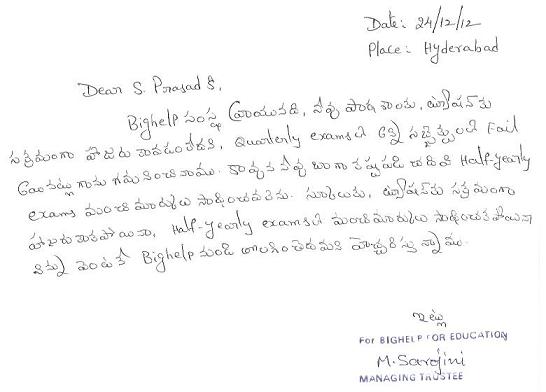 Date: 24/12/12
Place: Hyderabad
Dear S. Prasad S,
Bighelp సంస్థ వ్రాయునది, నీవు పాఠశాలకు, ట్యూషన్ కు
సక్రమంగా హాజరు కావడంలేదని, Quarterly examsలో అన్ని సబ్జెక్టులలో Fail
అయినట్లుగాను గమనించినాము. కావున నీవు బాగా కష్టపడి చదివి Half-yearly
exams మంచి మార్కులు సాధించవలెను. స్కూలుకు, ట్యూషన్ కు సక్రమంగా
హాజరు కాకపోయినా, Half-yearly examsలో మంచి మార్కులు సాధించకపోయినా
నిన్ను వెంటనే Bighelp నుండి తొలగించెదమని హెచ్చరిస్తున్నాము.
ఇట్లు
For BIGHELP FOR EDUCATION
M. Sarojini
MANAGING TRUSTEE